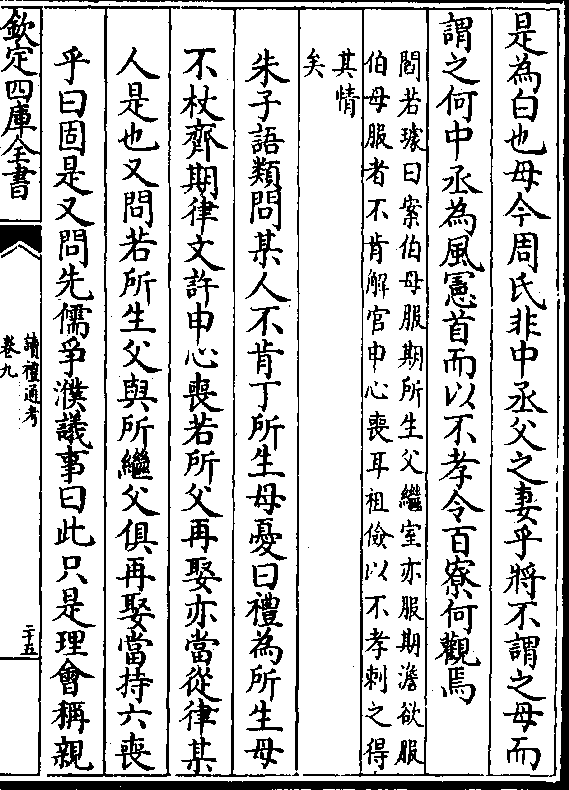 是為白也母今周氏非中丞父之妻乎將不謂之母而
謂之何中丞為風憲首而以不孝令百寮何觀焉
閻若璩曰案伯母服期所生父繼室亦服期澹欲服
伯母服者不肯解官申心喪耳祖儉以不孝刺之得
其情
矣
朱子語類問某人不肯丁所生母憂曰禮為所生母
不杖齊期律文許申心喪若所父再娶亦當從律某
人是也又問若所生父與所繼父俱再娶當持六喪
乎曰固是又問先儒爭濮議事曰此只是理會稱親
欽定四庫全書
讀禮通考
卷九
二十五